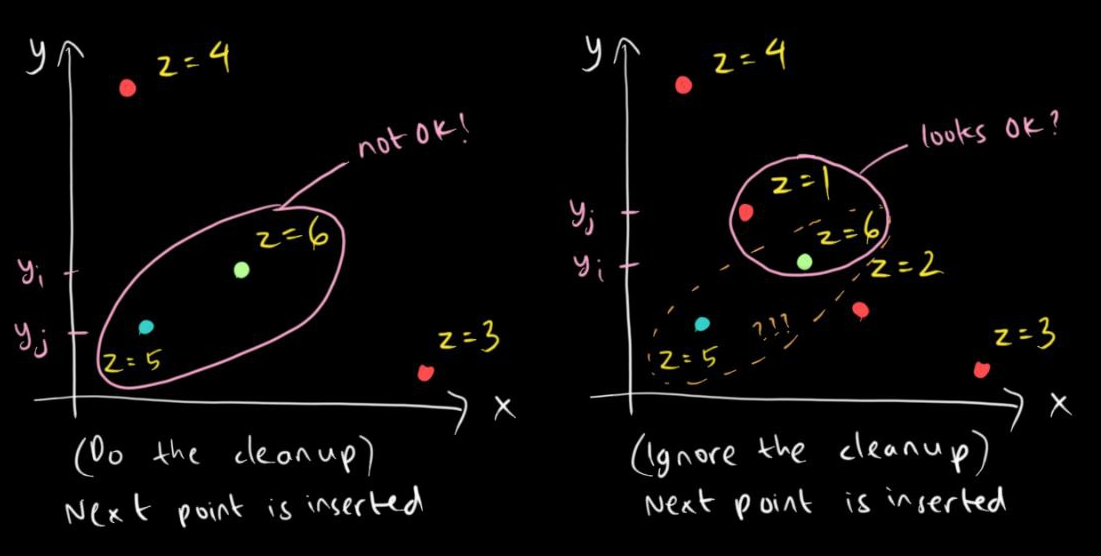 y
z = 4
not OK!
z = 6
yi
yj
z = 5
z = 3
x
(Do the cleanup)
Next point is inserted
y
z = 4
looks OK?
z = 1
yj
z = 6
yi
z = 2
???
z = 5
z = 3
x
(Ignore the cleanup)
Next point is inserted